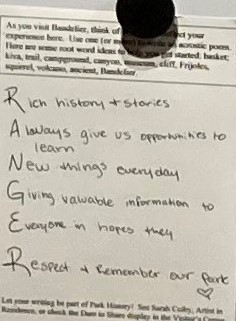 As you visit Bandelier, think of your
experience here. Use one (or more) acrostic poem.
Here are some root word ideas to started: basket,
kiva, trail, campground, canyon, museum, cliff, Frijoles,
squirrel, volcano, ancient, Bandelier.
Rich history + stories
Always give us opportunities to
learn
New things everyday
Giving valuable information to
Everyone in hopes they
Respect & Remember our Park
Let your writing be part of Park History! See Sarah Artist in
Residence, or check the Dare to Share display in the Visitor's